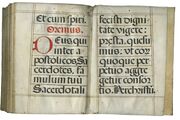 Et cum spiri.
Oremus.
Deus qui
inter a
postolicos Sa
cerdotes, fa
mulum tuum
Sacerdotali
fecisti digni
tate vigere:
presta. quesu
mus: ut eor
quoque per
petuo aggre
getur consor
tio. Per christu